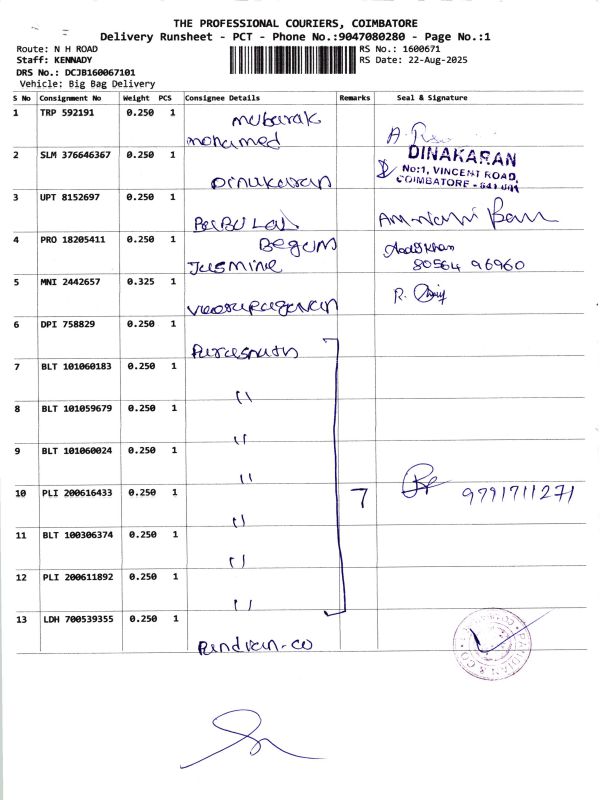 THE PROFESSIONAL COURIERS, COIMBATORE
Delivery Runsheet - PCT - Phone No.:9047080280 - Page No.:1
Route: N H ROAD
Staff: KENNADY
DRS No.: DCJB160067101
Vehicle: Big Bag Delivery
RS No.: 1600671
RS Date: 22-Aug-2025
S No Consignment No Weight PCS Consignee Details Remarks Seal & Signature
1 TRP 592191 0.250 1 mubarak
mohamed
2 SLM 376646367 0.250 1 Dinakaran
DINAKARAN
No:1, VINCENT ROAD,
COIMBATORE - 641 001
3 UPT 8152697 0.250 1
4 PRO 18205411 0.250 1 Begum
Jasmine
80564 96960
5 MNI 2442657 0.325 1
6 DPI 758829 0.250 1 Parasnath
7 BLT 101060183 0.250 1 "
8 BLT 101059679 0.250 1 "
9 BLT 101060024 0.250 1 "
10 PLI 200616433 0.250 1 " 7 9791711271
11 BLT 100306374 0.250 1 "
12 PLI 200611892 0.250 1 "
13 LDH 700539355 0.250 1 Pandian-co
PANDIAN & CO